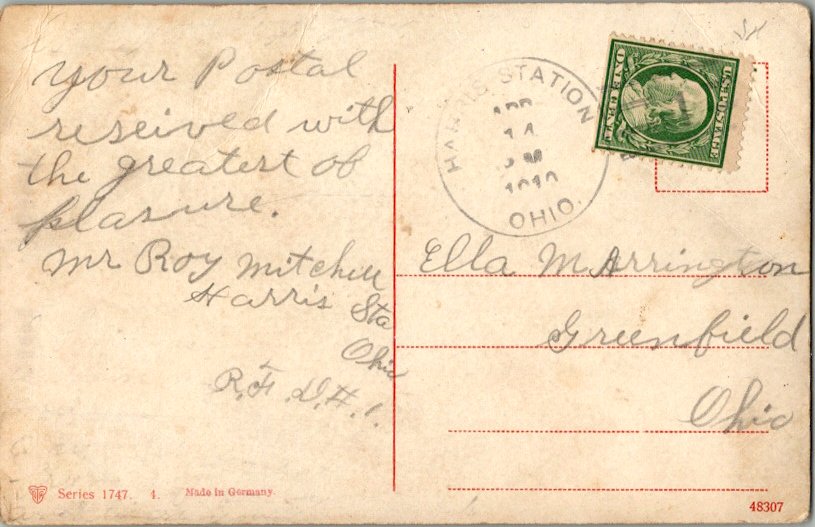 your Postal
reseived with
the greatest of
plasure.
Mr Roy Mitchell
Harris Sta
Ohio
R.F.D.#.1.
Series 1747. 4. Made in Germany.
HARRIS STATION
APR
14
PM
1910
OHIO.
U.S. POSTAGE
ONE CENT
Ella M Arrington
Greenfield
Ohio
48307